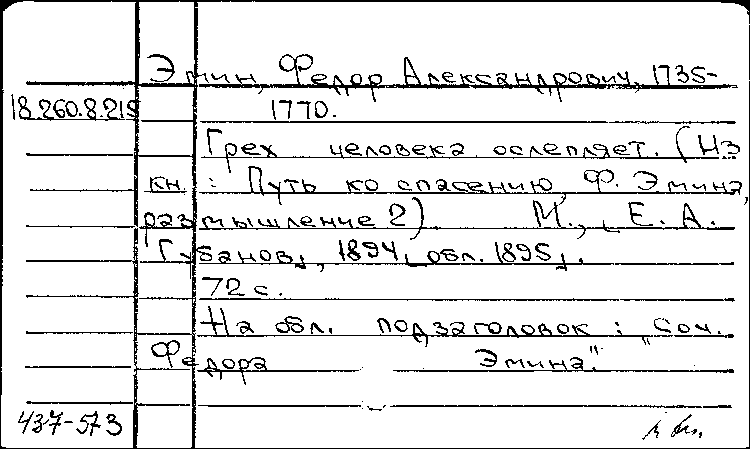 Эмин, Федор Александрович, 1735-
18.260.8.219 1770.
Грех человека ослепляет. (Из
кн : Путь ко спасению, Ф. Эмина,
размышление 2). М., [Е. А.
Губанов], 1894 [обл. 1895].
72 с.
На обл. подзаголовок : "Соч.
Федора Эмина".
437-573